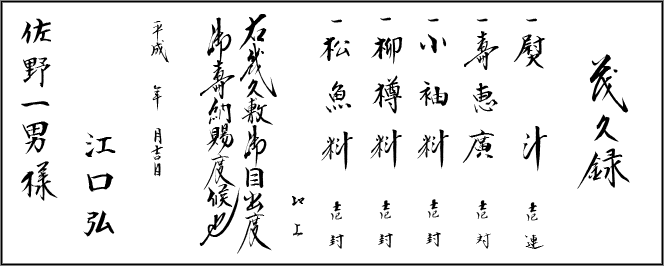 茂久録
一熨斗 壱連
一寿恵廣 壱対
一小袖料 壱封
一柳樽料 壱封
一松魚料 壱封
以上
右幾久敷御目出度
御寿納賜度候也
平成 年 月吉日
江口弘
佐野一男様